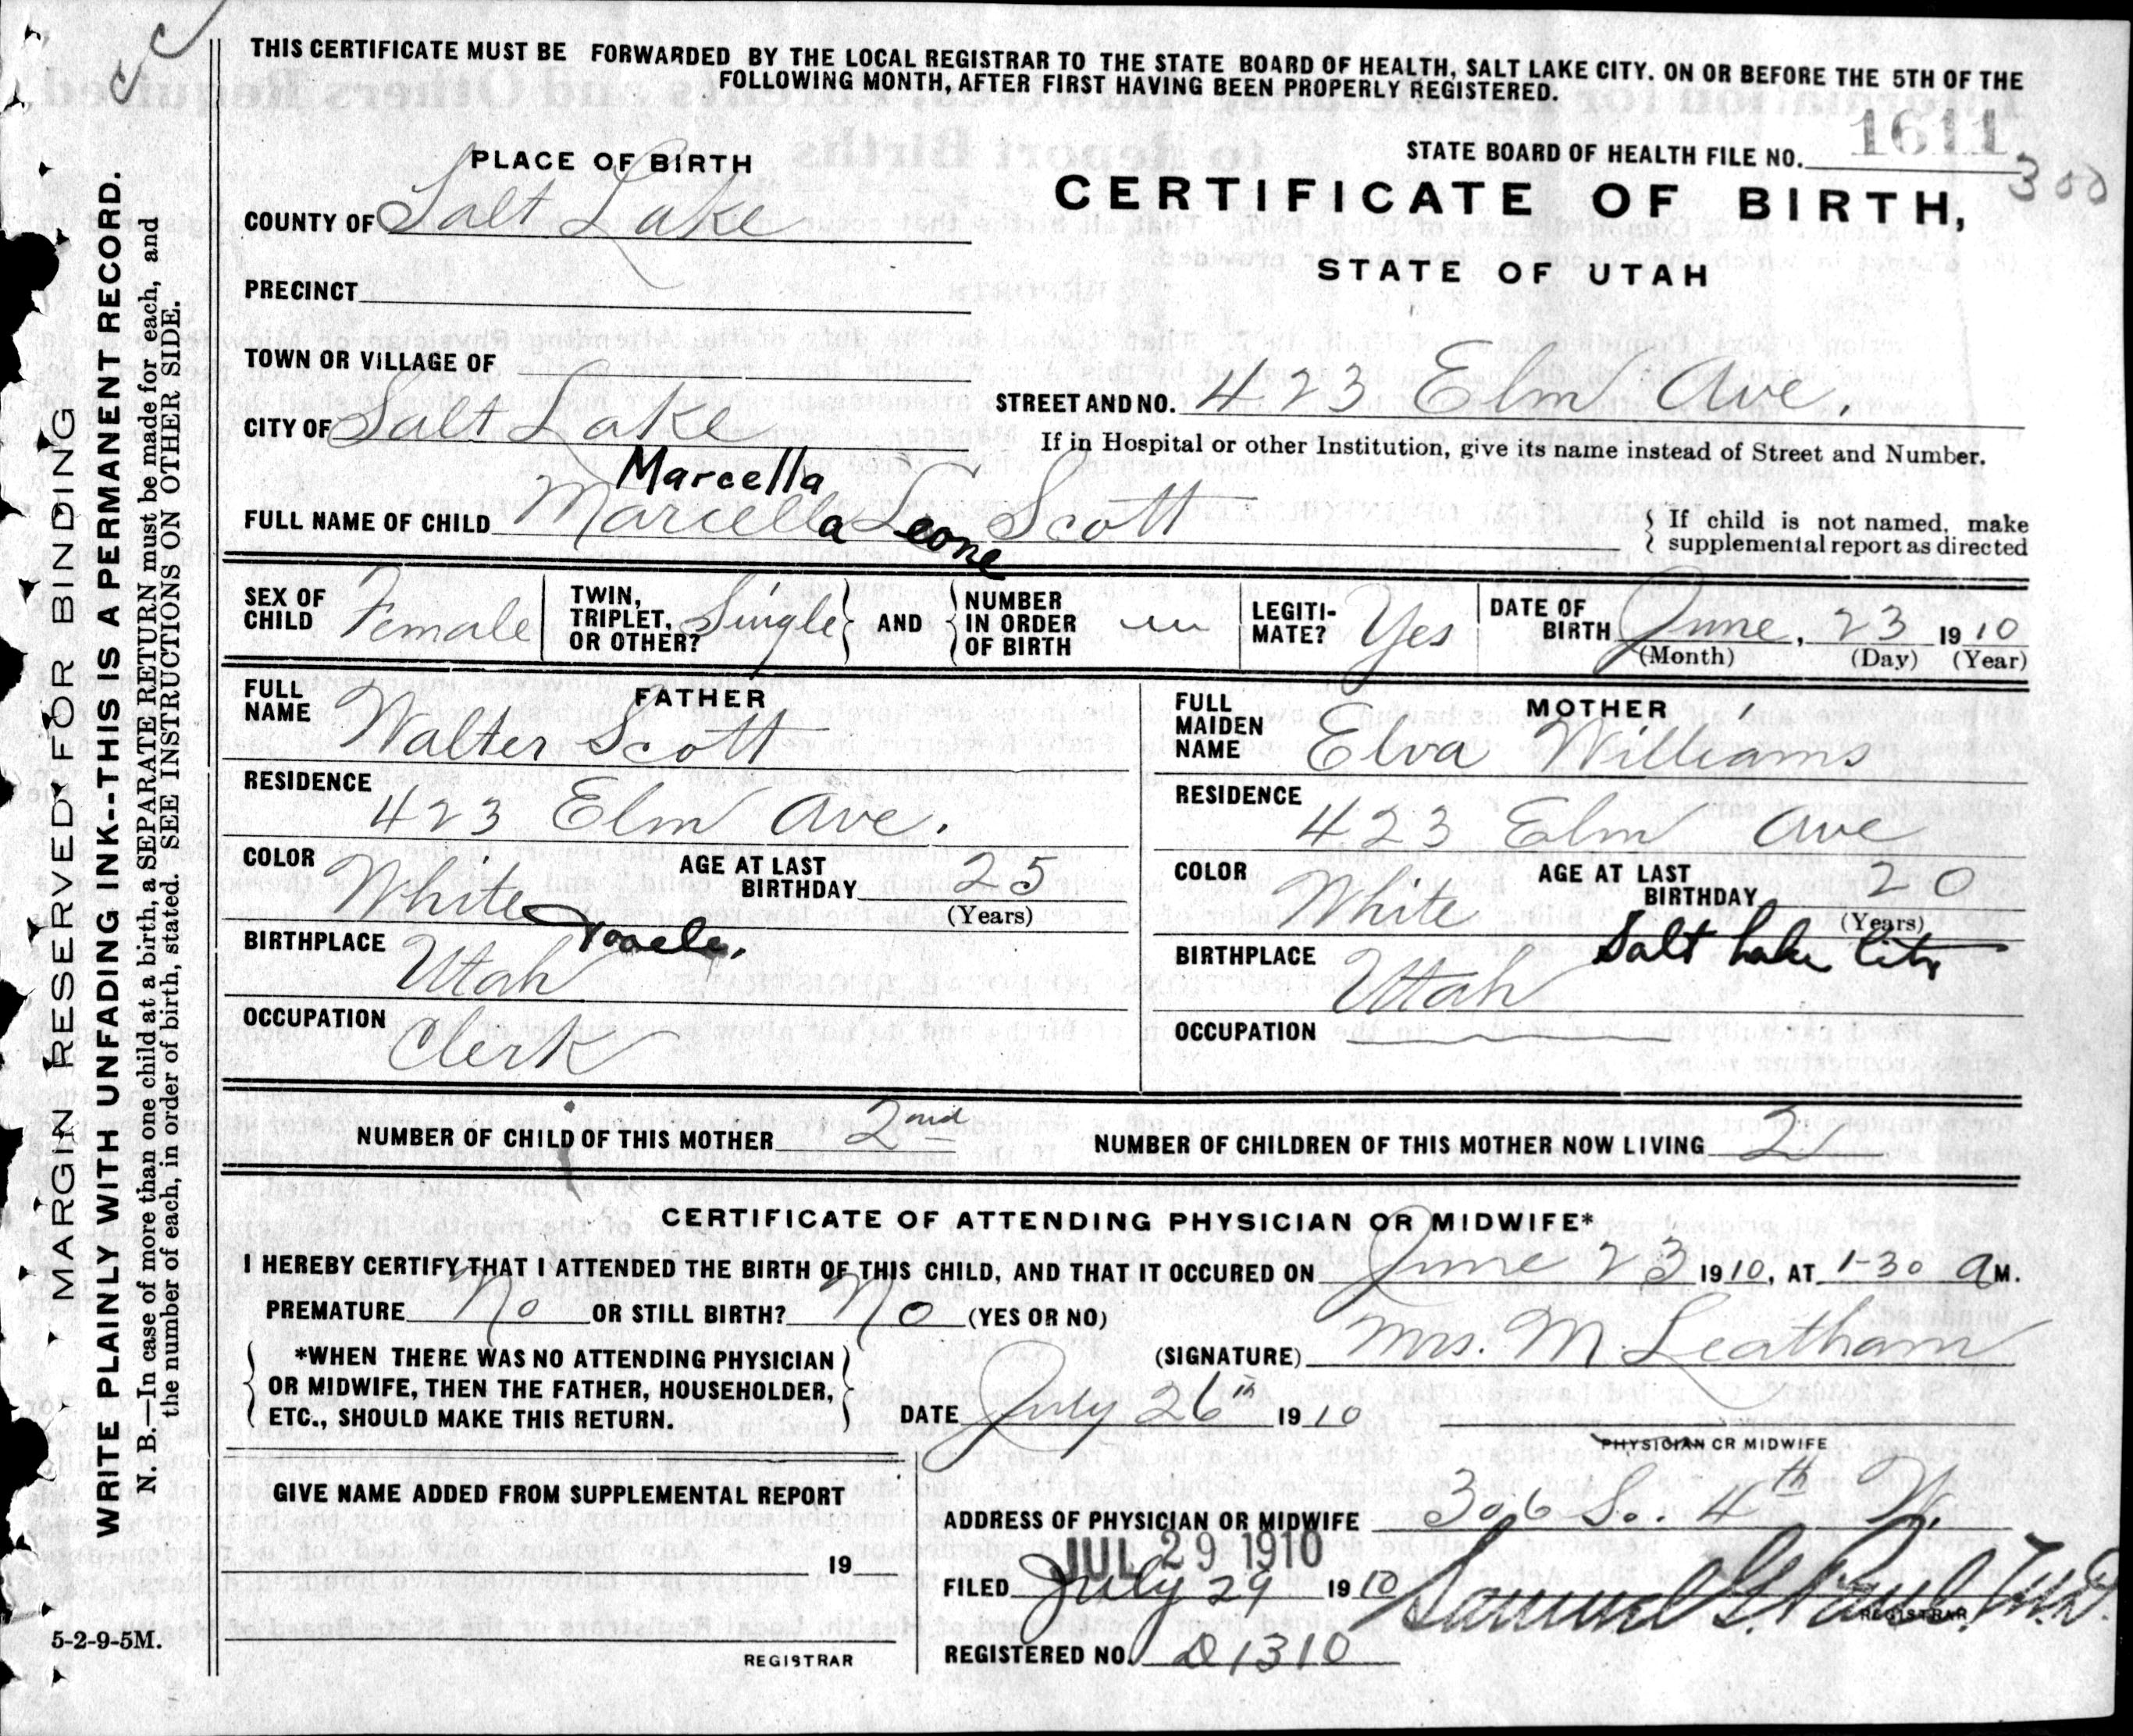 THIS CERTIFICATE MUST BE FORWARDED BY THE LOCAL REGISTRAR TO THE STATE BOARD OF HEALTH, SALT LAKE CITY. ON OR BEFORE THE 5TH OF THE
FOLLOWING MONTH, AFTER FIRST HAVING BEEN PROPERLY REGISTERED.
MARGIN RESERVED FOR BINDING
WRITE PLAINLY WITH UNFADING INK--THIS IS A PERMANENT RECORD.
N. B.—In case of more than one child at a birth, a SEPARATE RETURN must be made for each, and
the number of each, in order of birth, stated. SEE INSTRUCTIONS ON OTHER SIDE.
STATE BOARD OF HEALTH FILE NO. 1611
300
PLACE OF BIRTH
CERTIFICATE OF BIRTH,
STATE OF UTAH
COUNTY OF Salt Lake
PRECINCT
TOWN OR VILLAGE OF
STREET AND NO. 423 Elm Ave.
CITY OF Salt Lake
If in Hospital or other Institution, give its name instead of Street and Number.
Marcella
FULL NAME OF CHILD Marcella Leone Scott
If child is not named, make
supplemental report as directed
SEX OF CHILD Female
TWIN, TRIPLET, OR OTHER? Single AND NUMBER IN ORDER OF BIRTH
LEGITI-MATE? Yes
DATE OF BIRTH June, 23 1910
(Month) (Day) (Year)
FATHER
FULL NAME Walter Scott
RESIDENCE
423 Elm Ave.
COLOR White AGE AT LAST BIRTHDAY 25
(Years)
BIRTHPLACE Utah Tooele.
OCCUPATION Clerk
MOTHER
FULL MAIDEN NAME Elva Williams
RESIDENCE
423 Elm Ave
COLOR White AGE AT LAST BIRTHDAY 20
(Years)
BIRTHPLACE Utah Salt Lake City
OCCUPATION
NUMBER OF CHILD OF THIS MOTHER 2nd NUMBER OF CHILDREN OF THIS MOTHER NOW LIVING 2
CERTIFICATE OF ATTENDING PHYSICIAN OR MIDWIFE*
I HEREBY CERTIFY THAT I ATTENDED THE BIRTH OF THIS CHILD, AND THAT IT OCCURED ON June 23 1910, AT 1-30 A M.
PREMATURE No OR STILL BIRTH? No (YES OR NO)
*WHEN THERE WAS NO ATTENDING PHYSICIAN
OR MIDWIFE, THEN THE FATHER, HOUSEHOLDER,
ETC., SHOULD MAKE THIS RETURN.
(SIGNATURE) Mrs. M Leatham
DATE July 26th 1910
PHYSICIAN OR MIDWIFE
GIVE NAME ADDED FROM SUPPLEMENTAL REPORT
19
REGISTRAR
ADDRESS OF PHYSICIAN OR MIDWIFE 306 So. 4th W.
JUL 29 1910
FILED July 29 1910 Samuel G. Paul. M.D.
REGISTRAR
REGISTERED NO. 1310
5-2-9-5M.